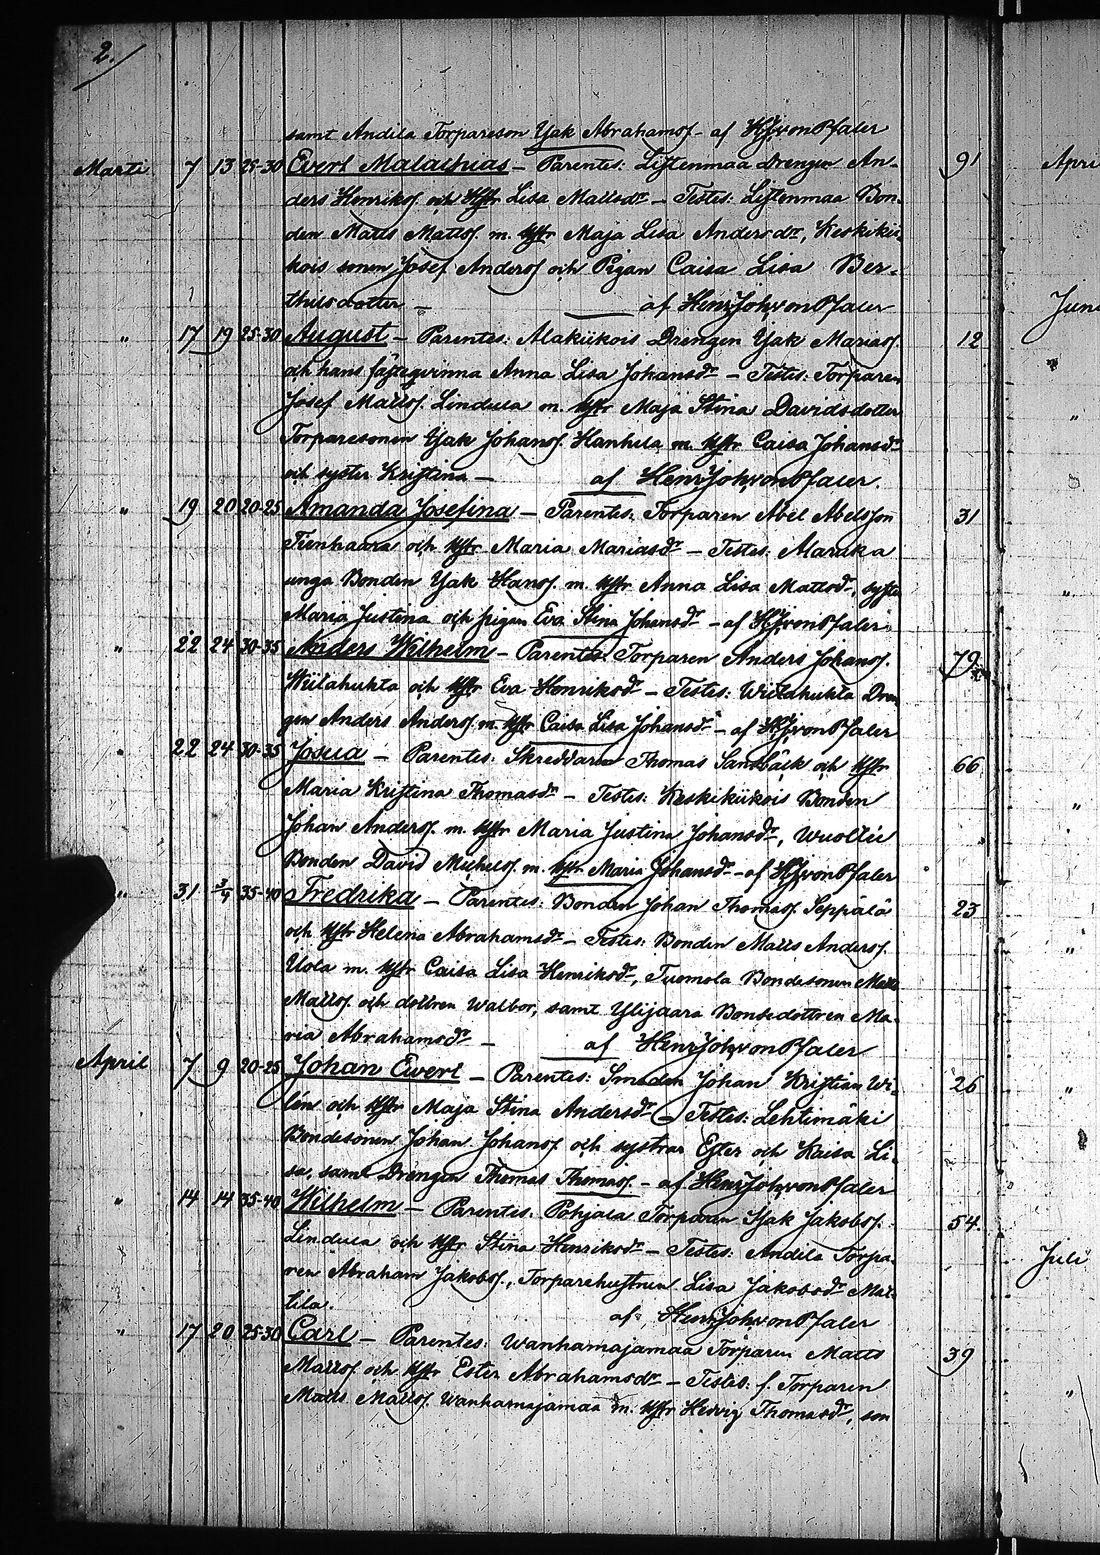 2.
samt Andila Torpareson Isak Abrahamss. - af HJvonPfaler
Marti 7 13 25-30 Evert Malachias - Parentes: Liftenmaa drengen An- 91 Apri
ders Henrikss. och hstr Lisa Mattsdr - Testes: Liftenmaa Bon-
den Matts Mattss. m. hstr Maja Lisa Andersdr, Keskikii-
kois sonen Josef Anderss. och Pigan Caisa Lisa Ber-
thilsdotter - af HenrJohvonPfaler Juni
" 17 19 25-30 August - Parentes: Alakiikois Drengen Isak Mariass. 12 "
och hans fästeqvinna Anna Lisa Johansdr - Testes: Torparen
Josef Mattss. Lindula m. hstr Maja Stina Davidsdotter "
Torparesonen Isak Johanss. Hanhela m. hstr Caisa Johansdr
och syster Kristina - af HenrJohvonPfaler.
" 19 20 20-25 Amanda Josefina - Parentes: Torparen Abel Abelsson 31
Tienhaara och hstr Maria Mariasdr - Testes: Maraka
unga Bonden Isak Hanss. m. hstr Anna Lisa Mattsdr, syster "
Maria Justina och pigan Eva Stina Johansdr - af HJvonPfaler
" 22 24 30-35 Anders Wilhelm - Parentes: Torparen Anders Johanss. 79
Wiitahukta och hstr Eva Henriksdr - Testes: Wiitahukta Dren
gen Anders Anderss. m. hstr Caisa Lisa Johansdr - af HJvonPfaler
" 22 24 30-35 Josua - Parentes: Skreddaren Thomas Sandbäck och hstr 66
Maria Kristina Thomasdr - Testes: Keskikiikois Bonden "
Johan Anderss. m. hstr Maria Justina Johansdr, Wuollii
Bonden David Michelss. m. hstr Maria Johansdr - af HJvonPfaler
" 31 3/4 35-40 Fredrika - Parentes: Bonden Johan Thomass. Seppälä 23
och hstr Helena Abrahamsdr - Testes: Bonden Matts Anderss. "
Uola m. hstr Caisa Lisa Henriksdr, Tuomola Bondesonen Matts
Mattss. och dottren Walbor, samt Ylijaara Bondedottren Ma-
ria Abrahamsdr - af HenrJohvonPfaler
April 7 9 20-25 Johan Evert - Parentes: Smeden Johan Kristian Wi- 26 "
lén och hstr Maja Stina Andersdr - Testes: Lehtimäki
Bondesonen Johan Johanss. och systrar Ester och Kaisa Li-
sa, samt Drengen Thomas Thomass. - af HenrJohvonPfaler
" 14 14 35-40 Wilhelm - Parentes: Pohjala Torparen Isak Jakobss. 54
Lindula och hstr Stina Henriksdr - Testes: Andila Torpa-
ren Abraham Jakobss., Torparehustrun Lisa Jakobsdr Mat- Juli
tila. af HenrJohvonPfaler
" 17 20 25-30 Carl - Parentes: Wanhamajamaa Torparen Matts 39
Mattss. och hstr Ester Abrahamsdr - Testes: f. Torparen "
Matts Mattss. Wanhamajamaa m. hstr Hedvig Thomasdr, son